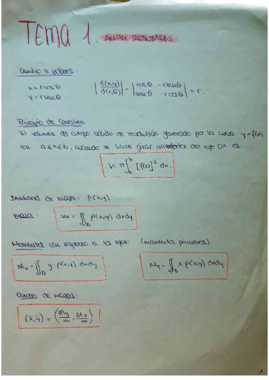 TEMA 1.
Cambio a polares
x = r cosθ
y = r senθ
|∂(x,y)/∂(r,θ)| = |cosθ -r senθ; senθ r cosθ| = r.
Principio de Cavalieri
El volumen del cuerpo sólido de revolución generado por la curva y=f(x)
con a≤x≤b, cuando se hace girar alrededor del eje Ox es
V = π∫_a^b [f(x)]² dx.
Densidad de masa: ρ(x,y)
Masa: m = ∬_D ρ(x,y) dxdy
Momentos con respecto a los ejes: (momentos primeros)
M_x = ∬_D y ρ(x,y) dxdy
M_y = ∬_D x ρ(x,y) dxdy
Centro de masas:
(x̄,ȳ) = (M_y/m, M_x/m)